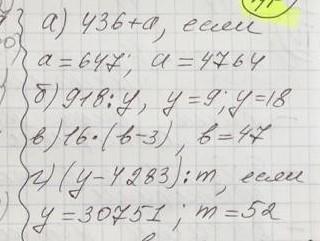 а) 436+а, если
а=647; а=4764
б) 918:у, у=9; у=18
в) 16·(в-3), в=47
г) (у-4283):m, если
у=30751; m=52